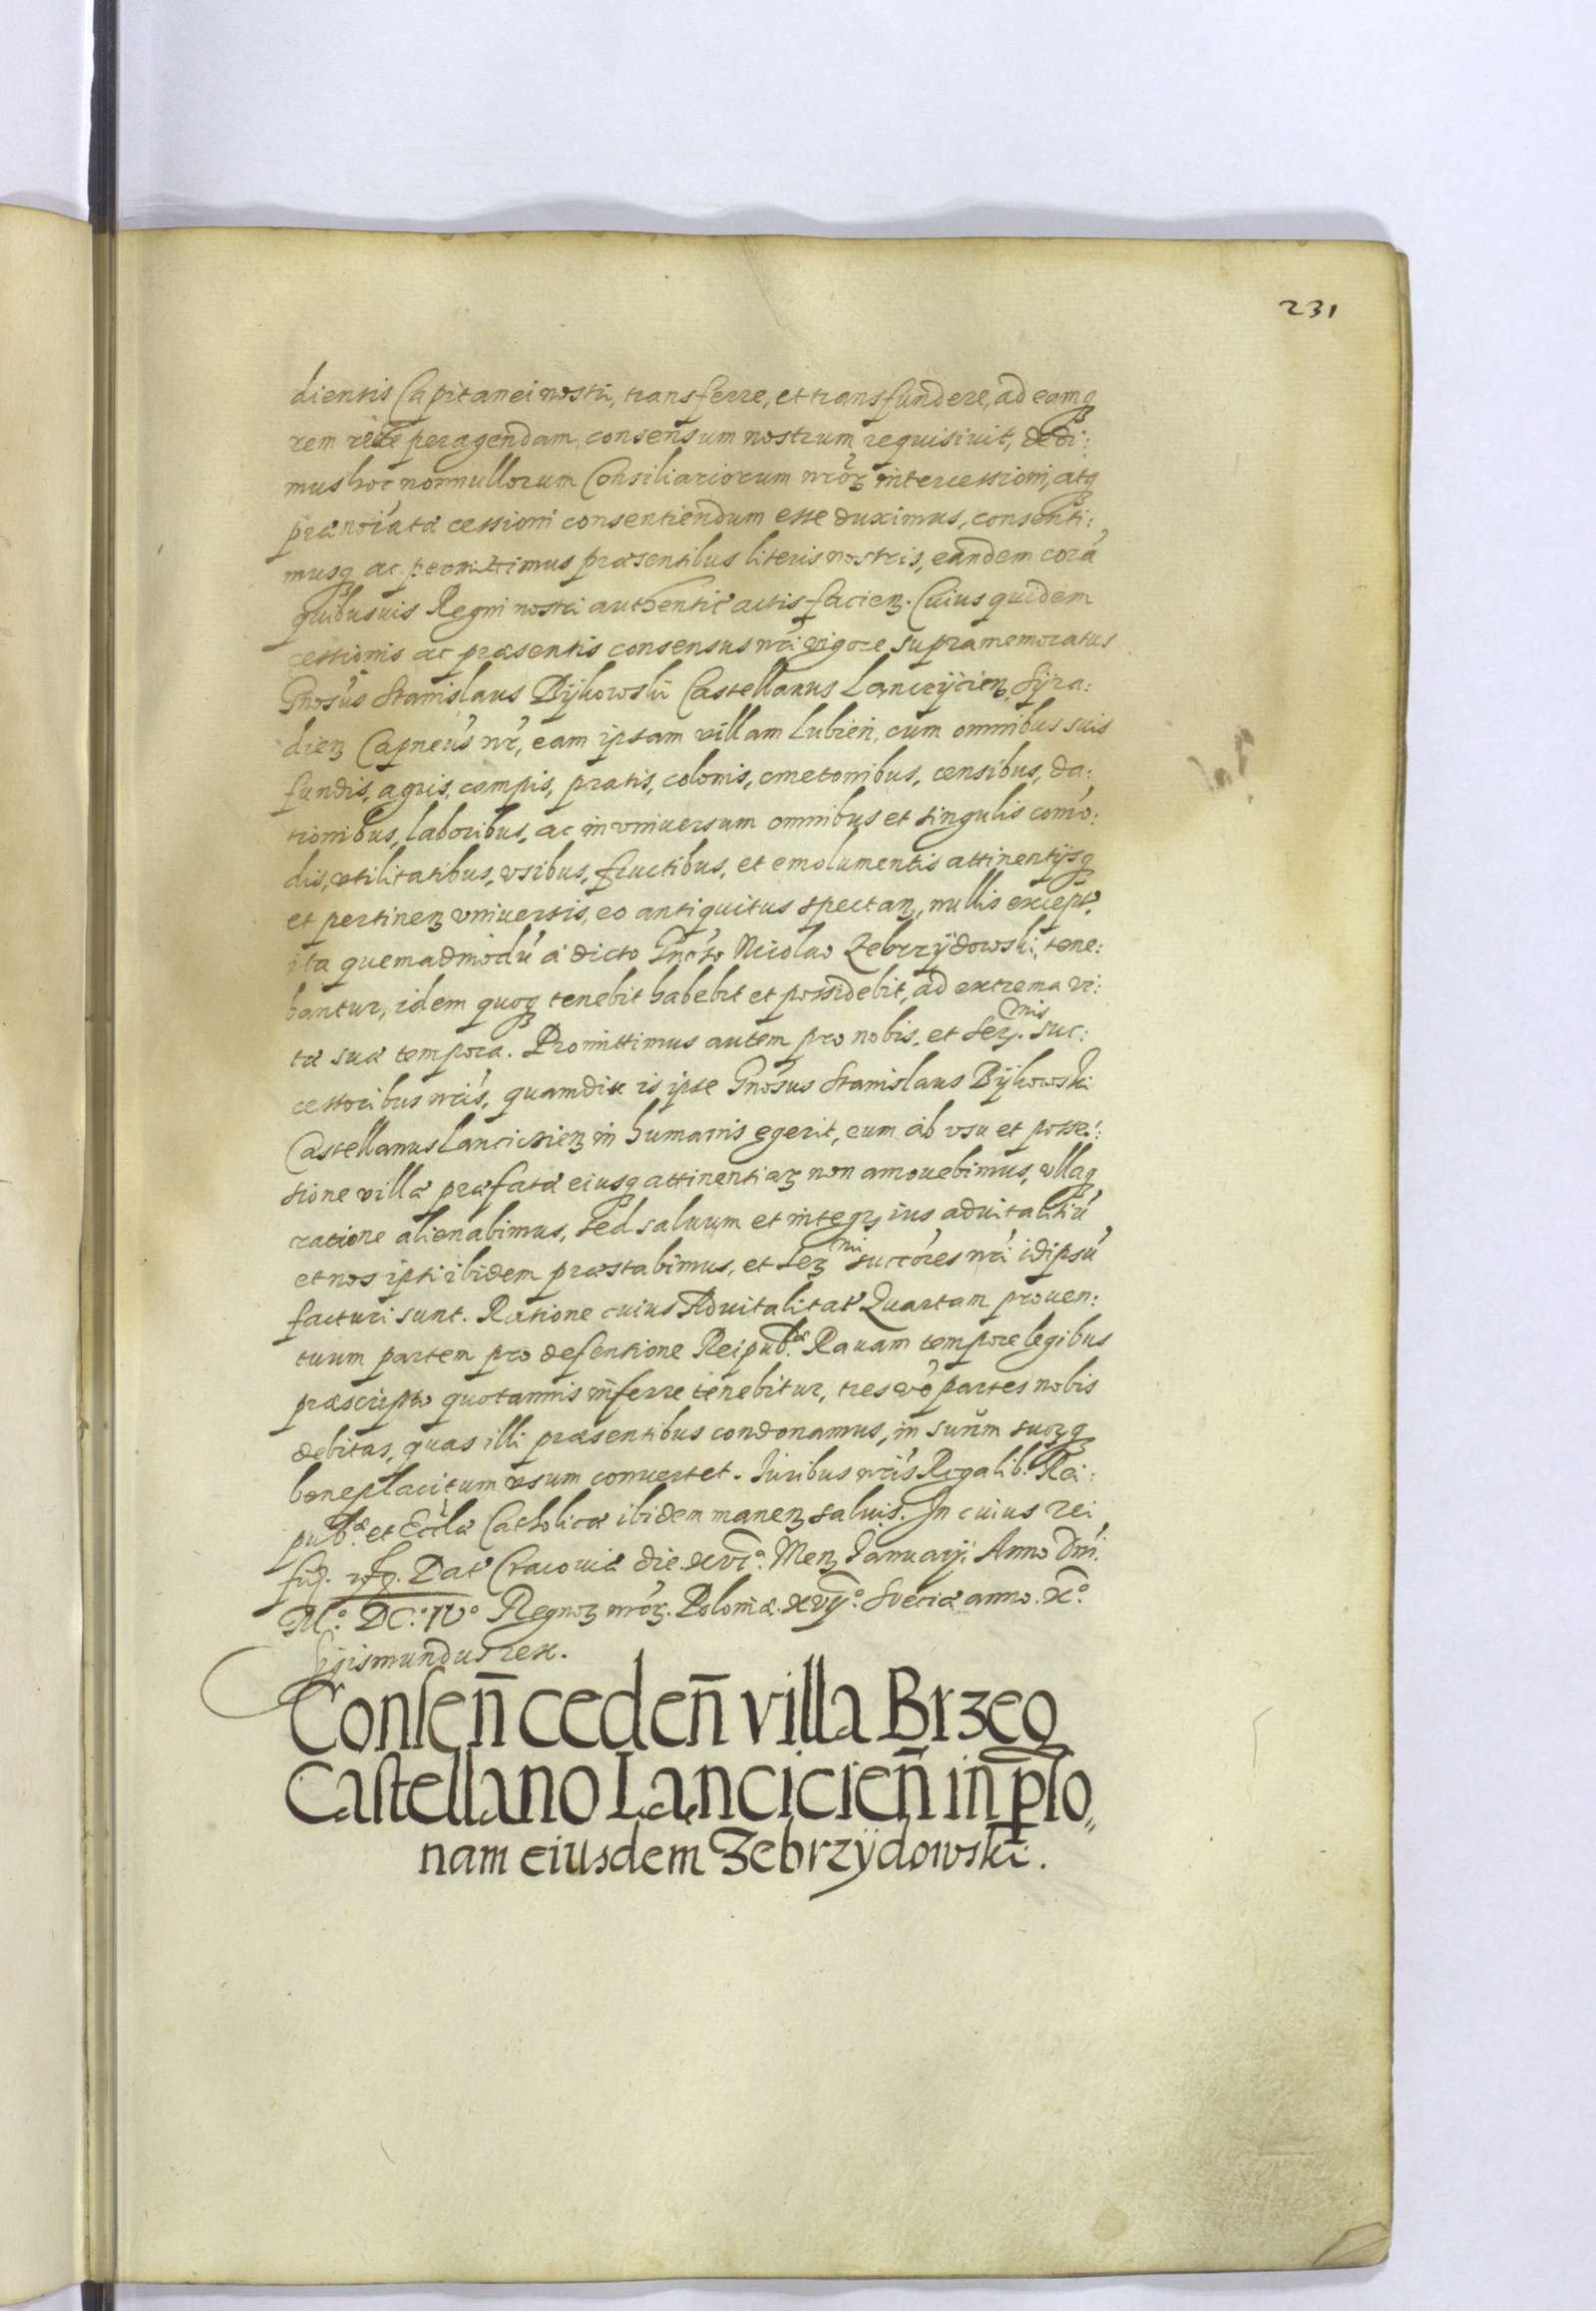 231
dientis Capitanei nostri, transferre, et transfundere, ad eamq
rem rite peragendam, consensum nostrum requisiuit, dedi:
mus hoc nonnullorum Consiliariorum nr̃orꝫ intercessioni, atq
prænoĩatæ cessioni consentiendum esse duximus, consenti:
musq ac permittimus præsentibus literis nostris, eandem corã
quibusuis Regni nostri authentic̃ actis facienꝫ. Cuius quidem
cessionis ac præsentis consensus nr̃i vigore supramemoratus
Gnosus Stanislaus Bÿkowski Castellanus Lancÿcienꝫ Syra:
dienꝫ Capneus nr̃, eam ipsam villam Lubień, cum omnibus suis
fundis, agris, campis, pratis, colonis, cmetonibus, censibus, da:
tionibus, laboribus, ac in vniuersum omnibus et singulis com̃o:
dis, vtilitatibus, vsibus, fructibus, et emolumentis attinentÿsq
et pertinenꝫ vniuersis, eo antiquitus spectanꝫ, nullis except.
ita quemadmodũ à dicto Gnoso Nicolao Zebrzÿdowski tene:
bantur, idem quoq tenebit habebit et possidebit, ad extrema vi:
tæ suæ tempora. Promittimus autem pro nobis, et Serꝫ. mis suc:
cessoribus nr̃is, quamdiu is ipse Gnosus Stanislaus Bÿkowski
Castellanus Lancicienꝫ in humanis egerit, eum ab vsu et posses:
sione villæ præfatæ eiusq attinentiarꝫ non amouebimus, vllaq
ratione alienabimus, sed saluum et integrꝫ ius aduitalitiũ
et nos ipsi ibidem præstabimus, et Serꝫ mi succores nr̃i idipsũ
facturi sunt. Ratione cuius Aduitalitat Quartam prouen:
tuum partem pro defensione Reipub.æ Rauam tempore legibus
præscripto quotannis inferre tenebitur, tres võ partes nobis
debitas, quas illi præsentibus condonamus, in suum̃ suorꝫq
beneplacitum vsum conuertet. Juribus nr̃is Regalib. Rei:
pub.æ et Eccl̃æ Catholicæ ibidem manenꝫ saluis. In cuius rei
fid. Dat Cracouiæ die xvi.º Menꝫ Januarÿ. Anno Dni.
M.º DC.º IVº Regnorꝫ nr̃orꝫ. Poloniæ. xvÿ.º Sueciæ anno. xº.
Sigismundus rex.
Conseñ cedeñ villa Brzeg
Castellano Lancicieñ in p̱so,,
nam eiusdem Zebrzÿdowski.